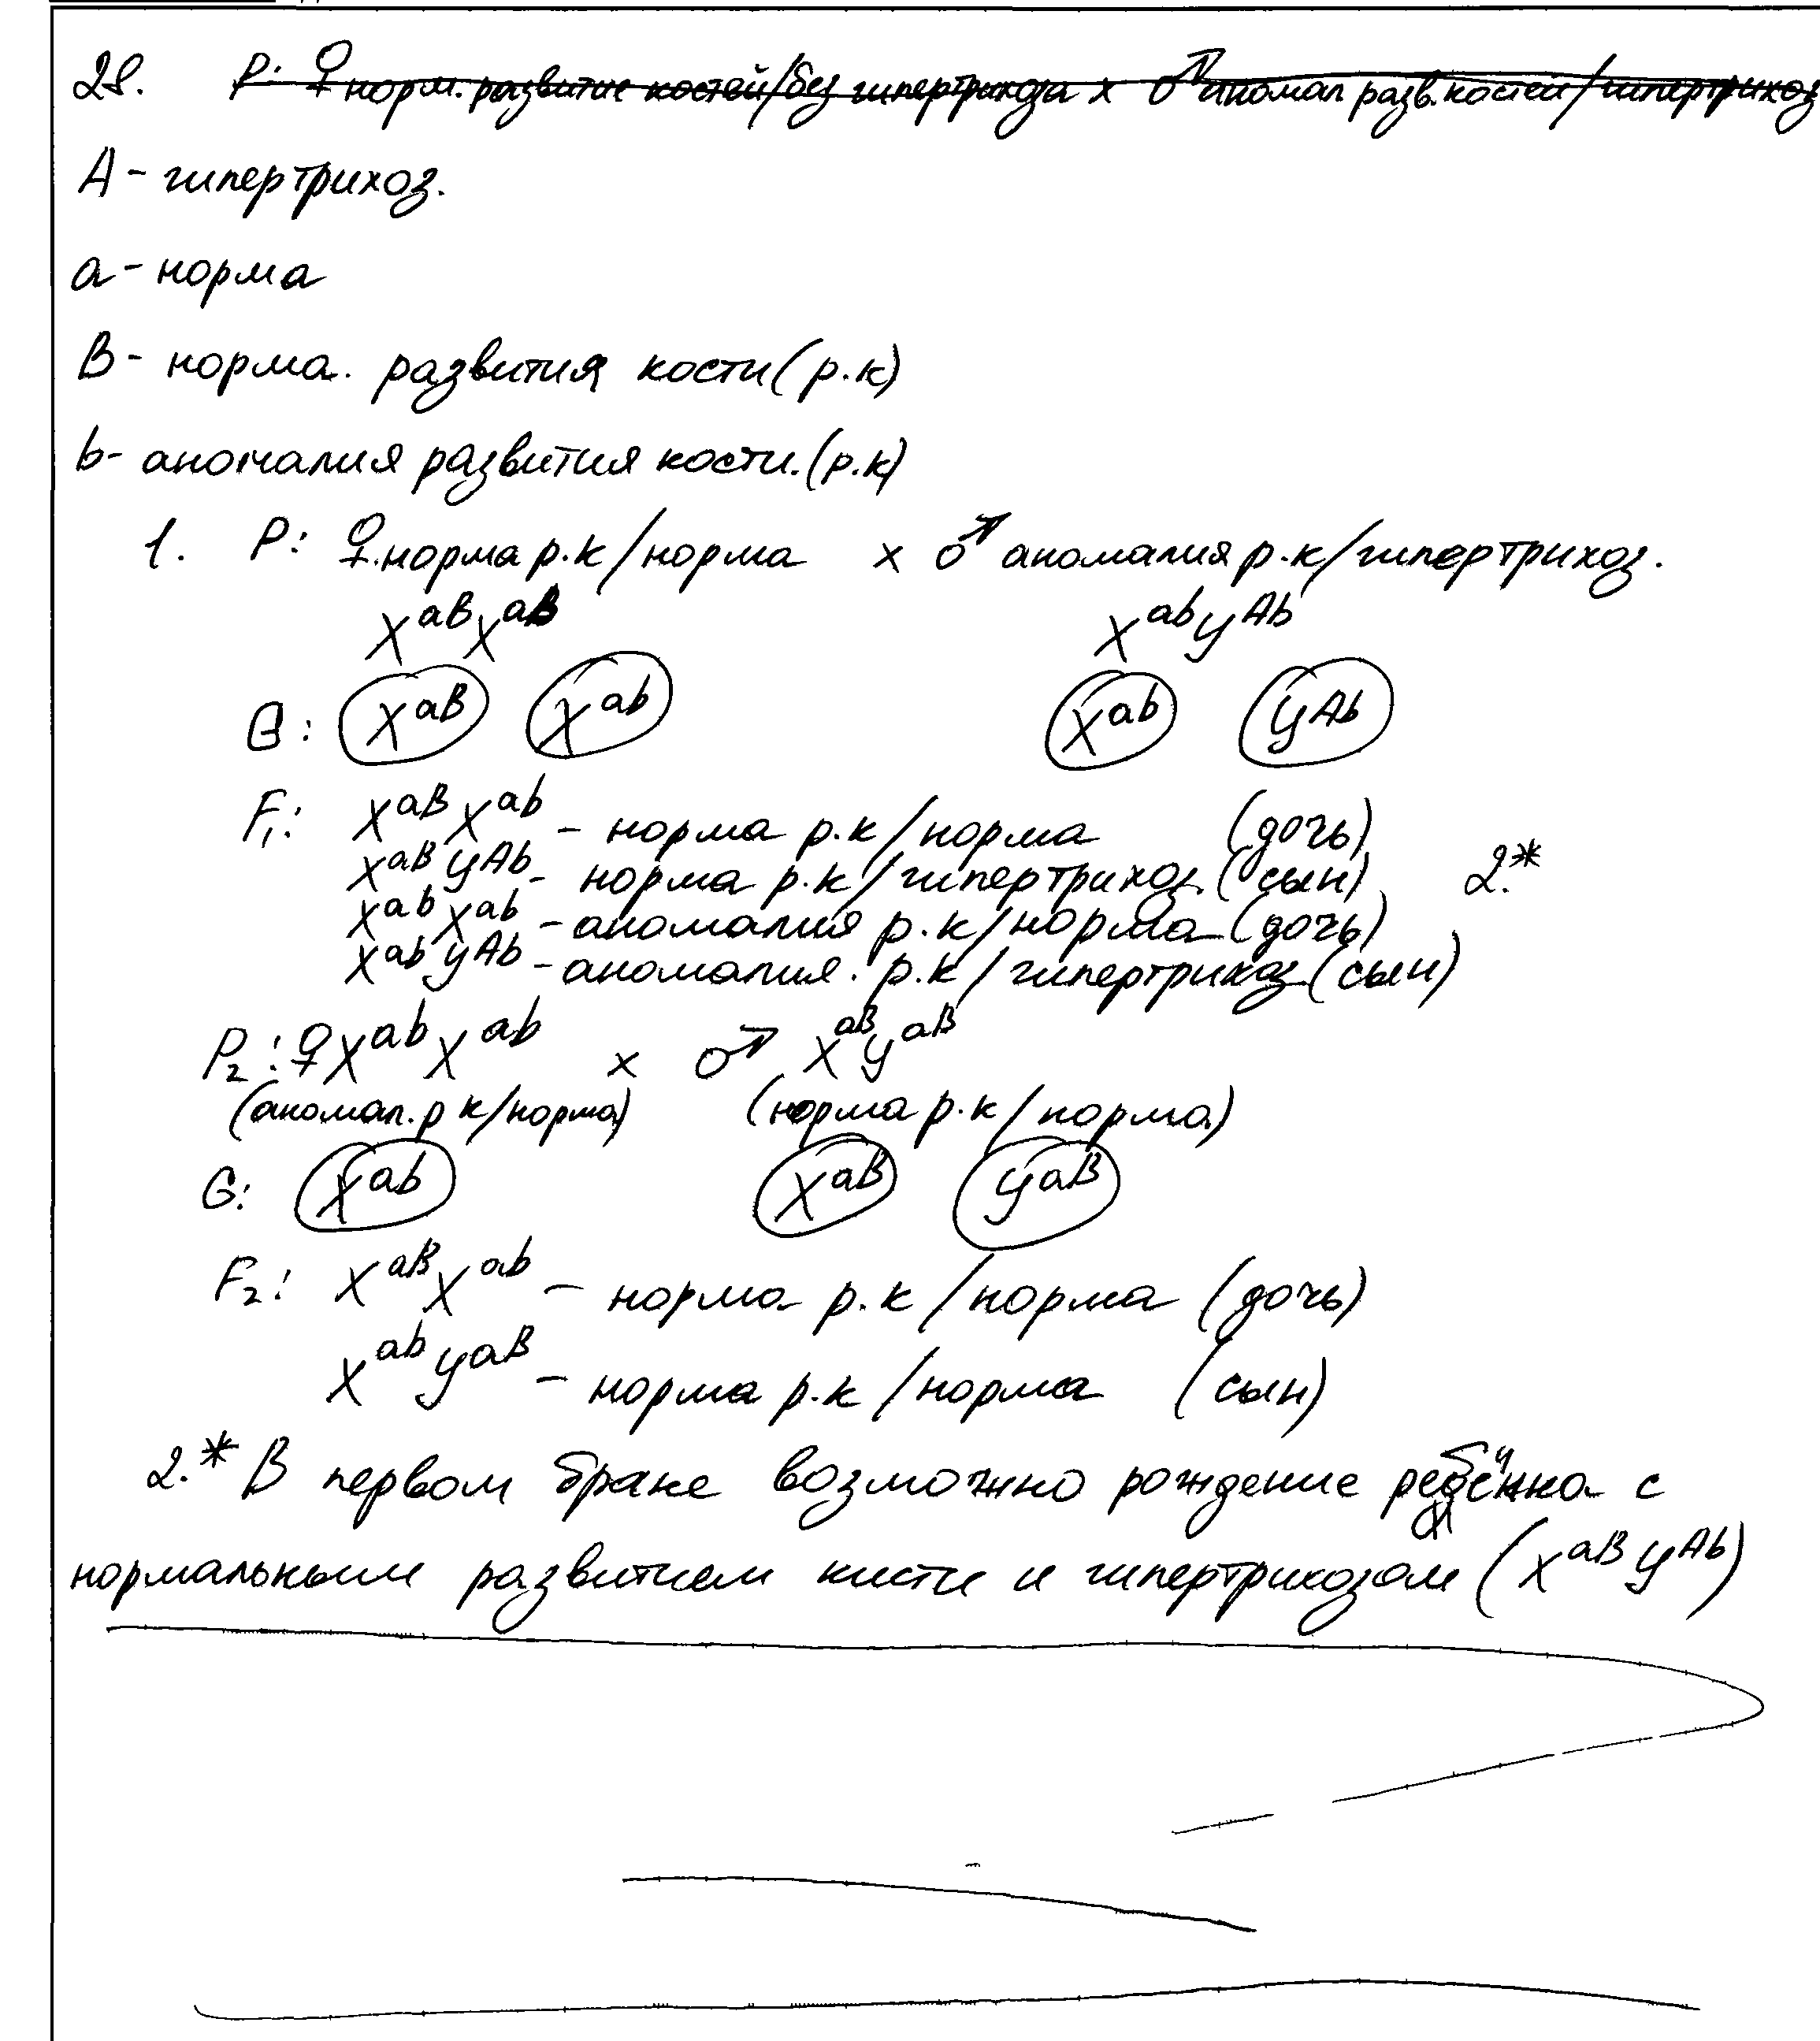 28. P: ♀ норм. развитие костей/без гипертрихоза x ♂ аномал разв. костей/гипертрихоз
A - гипертрихоз.
a - норма
B - норма. развития кости (р.к)
b - аномалия развития кости. (р.к)
1. P: ♀ норма р.к/норма x ♂ аномалия р.к/гипертрихоз.
XaBXaB XabYAb
G: XaB Xab Xab YAb
F1: XaBXab - норма р.к/норма (дочь)
XaBYAb - норма р.к/гипертрихоз (сын) 2.*
XabXab - аномалия р.к/норма (дочь)
XabYAb - аномалия. р.к/гипертрихоз (сын)
P2: ♀XabXab x ♂ XaBYaB
(аномал. р к/норма) (норма р.к/норма)
G: Xab XaB YaB
F2: XaBXab - норма р.к/норма (дочь)
XabYaB - норма р.к/норма (сын)
2.* В первом браке возможно рождение ребёнка с
нормальным развитием кисти и гипертрихозом (XaBYAb)